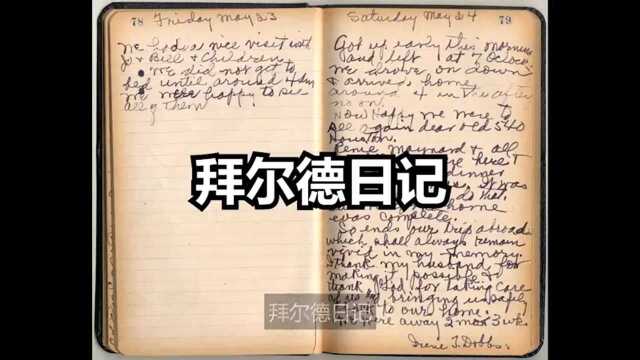 78 Friday May 23
We had a nice visit with
Bill & Children
We did not get to
bed until around 4 am
We were happy to see
all of them
Saturday May 24 79
Got up early this morning
and left at 7 Oclock
We drove on down
& arrived home
around 4 in the after
noon.
How happy we were to
see again dear old 540
Houston.
Maynard & all
here &
dinner
It was
do that.
home
was complete.
So ends our trip abroad
which shall always remain
vivid in my memory.
thank my husband for
making it possible &
thank God for taking care
of us & bringing us safely
to our home.
away 2 mos 3 wks.
Irene T. Dobbs.
拜尔德日记
拜尔德日记